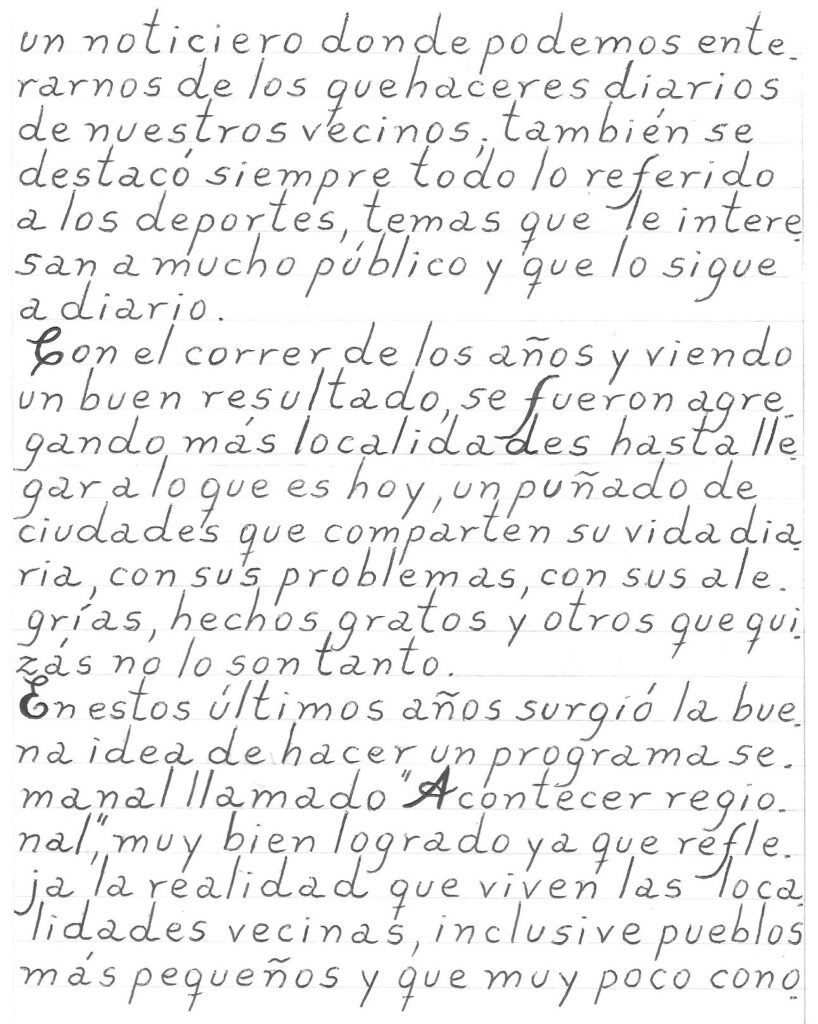 un noticiero donde podemos ente-
rarnos de los quehaceres diarios
de nuestros vecinos; también se
destacó siempre todo lo referido
a los deportes, temas que le intere-
san a mucho público y que lo sigue
a diario.
Con el correr de los años y viendo
un buen resultado, se fueron agre-
gando más localidades hasta lle-
gar a lo que es hoy, un puñado de
ciudades que comparten su vida dia-
ria, con sus problemas, con sus ale-
grías, hechos gratos y otros que qui-
zás no lo son tanto.
En estos últimos años surgió la bue-
na idea de hacer un programa se-
manal llamado "Acontecer regio-
nal", muy bien logrado ya que refle-
ja la realidad que viven las loca-
lidades vecinas, inclusive pueblos
más pequeños y que muy poco cono-